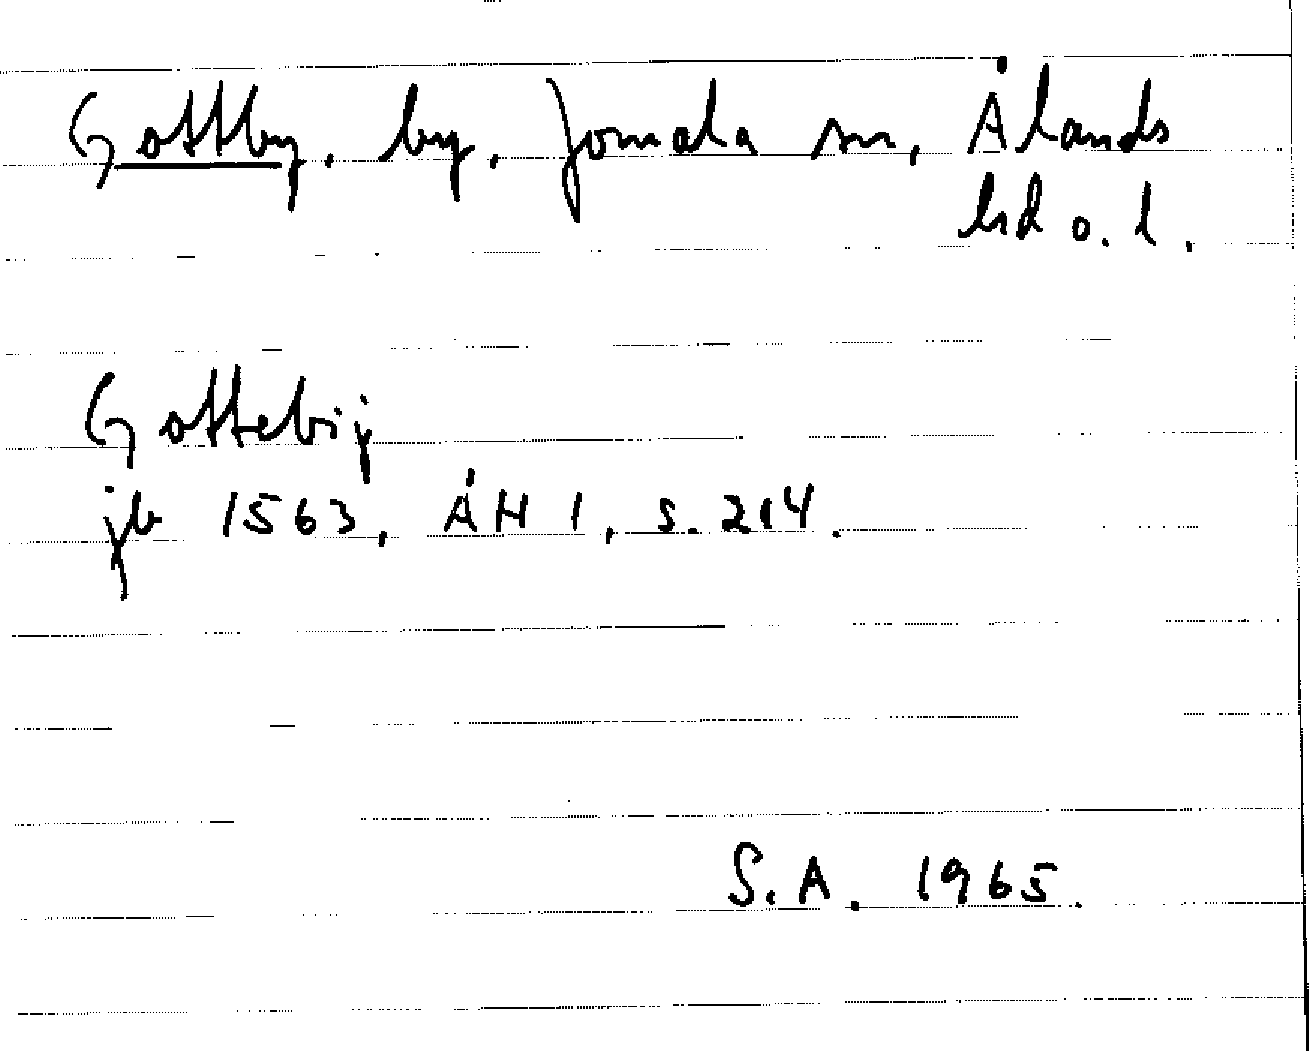 Gottby, by, Jomala sn, Ålands
hd o. l.
Gottebij
jb 1563, ÅH 1, s. 214.
S.A. 1965.